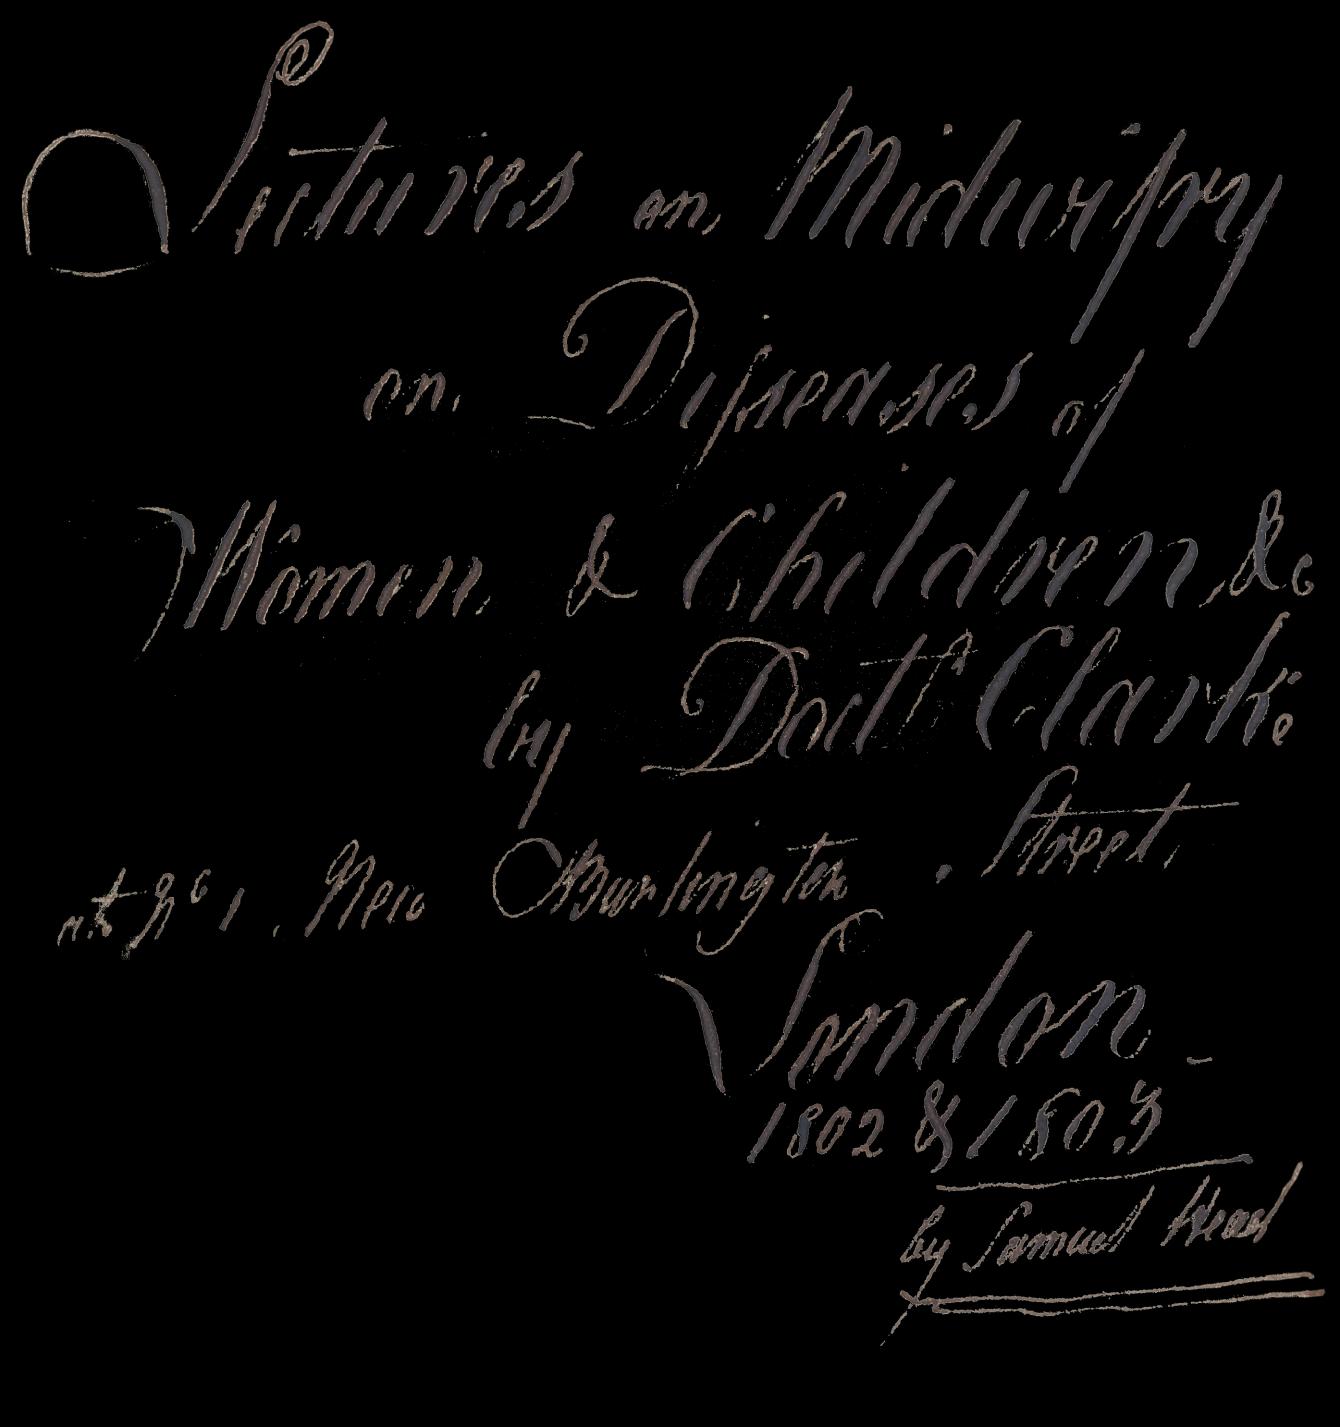 Lectures on Midwifry
on Diseases of
Women & Children &c
by Doctr Clarke
at No 1. New Burlington. Street.
London -
1802 & 1803
by Samuel Head